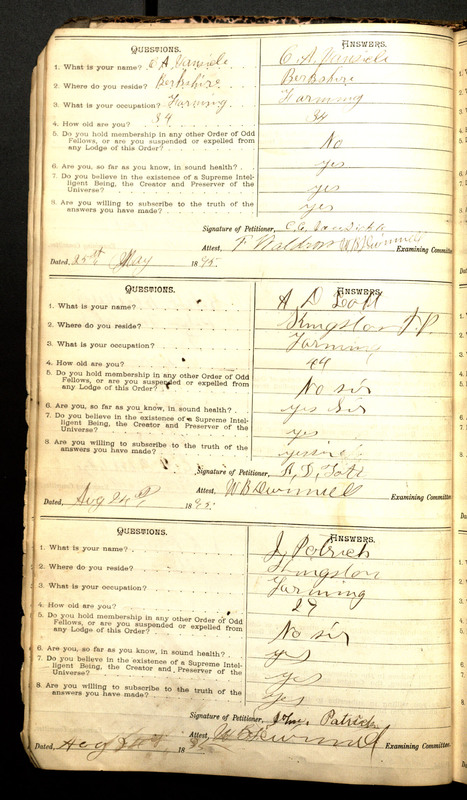 QUESTIONS. ANSWERS.
1. What is your name? C A Vansicle C. A. Vansicle
2. Where do you reside? Berkshire Berkshire
3. What is your occupation? Farming. Farming
4. How old are you? 34 34
5. Do you hold membership in any other Order of Odd
Fellows, or are you suspended or expelled from
any Lodge of this Order? No
6. Are you, so far as you know, in sound health? yes
7. Do you believe in the existence of a Supreme Intel-
ligent Being, the Creator and Preserver of the
Universe? yes
8. Are you willing to subscribe to the truth of the
answers you have made? yes
Signature of Petitioner, C. A.
Attest, F W B Dwinnell Examining Committee
Dated, 25th May 1895.
QUESTIONS. ANSWERS.
1. What is your name? A. D.
2. Where do you reside? Kingston T. P.
3. What is your occupation? Farming
4. How old are you? 44
5. Do you hold membership in any other Order of Odd
Fellows, or are you suspended or expelled from
any Lodge of this Order? No sir
6. Are you, so far as you know, in sound health? yes Sir
7. Do you believe in the existence of a Supreme Intel-
ligent Being, the Creator and Preserver of the
Universe? yes
8. Are you willing to subscribe to the truth of the
answers you have made? yes sir
Signature of Petitioner, A. D.
Attest, W B Dwinnell Examining Committee
Dated, Aug 24th, 1895.
QUESTIONS. ANSWERS.
1. What is your name? J Patrick
2. Where do you reside? Kingston
3. What is your occupation? Farming
4. How old are you? 27
5. Do you hold membership in any other Order of Odd
Fellows, or are you suspended or expelled from
any Lodge of this Order? No sir
6. Are you, so far as you know, in sound health? yes
7. Do you believe in the existence of a Supreme Intel-
ligent Being, the Creator and Preserver of the
Universe? yes
8. Are you willing to subscribe to the truth of the
answers you have made? yes
Signature of Petitioner, Patrick
Attest, W B Dwinnell Examining Committee
Dated, Aug 24th, 18